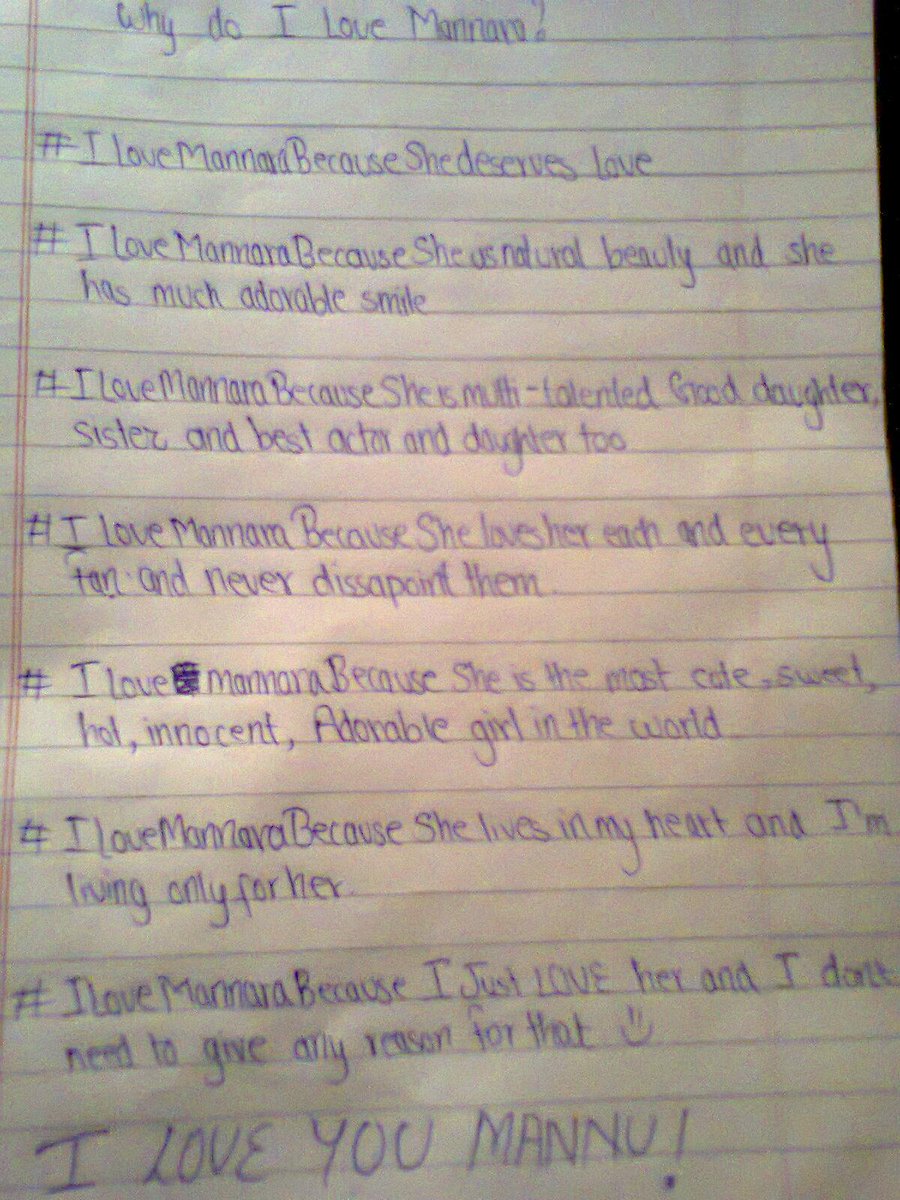 Why do I Love Mannara?
# I loveMannaraBecauseShedeserves love
# I loveMannaraBecauseSheisnatural beauty and she
has much adorable smile
# I loveMannaraBecauseSheismulti-talented Good daughter,
sister and best actor and daughter too
# I loveMannaraBecauseShelovesher each and every
fan and never dissapoint them.
# I love mannaraBecause She is the most cute, sweet,
hot, innocent, Adorable girl in the world
# IloveMannaraBecause She lives in my heart and I'm
living only for her.
# IloveMannaraBecause I Just LOVE her and I don't
need to give any reason for that
I LOVE YOU MANNU!